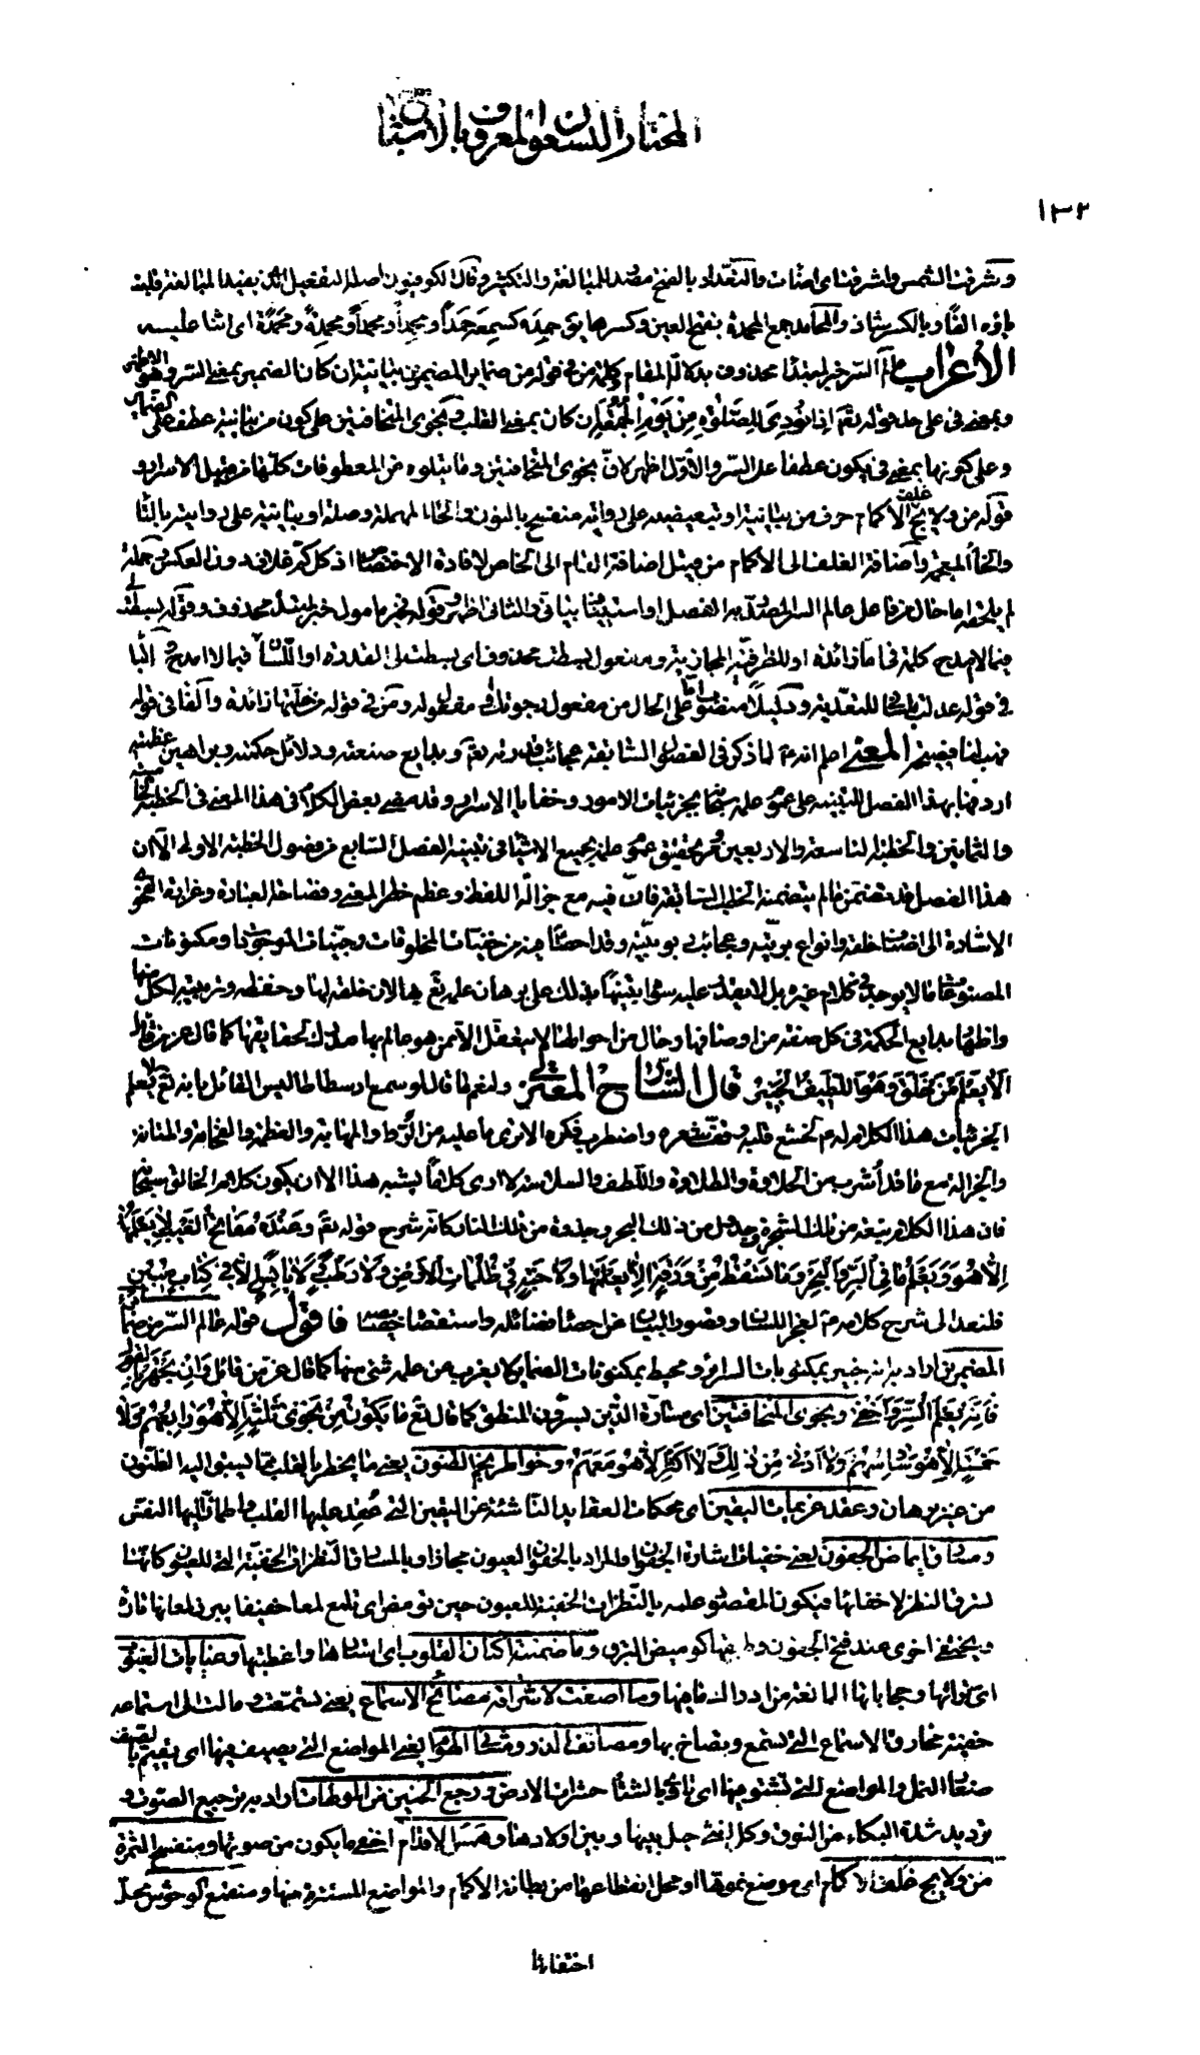 المختار التسعون المعروف بالأشباح
١٣٢
وشرقت الشمس واشرقت اى اضائت والتعداد بالفتح مصدر للمبالغة والتكثير وقال الكوفيون اصله التفعيل الذى يفيد المبالغة قلبت
ياؤه الفاً وبالكسر شاذ والمحامد جمع المحمدة بفتح العين وكسرها يق حمده كسمعه حمداً ومحمِداً ومحمَداً ومحمِدةً ومحمَدةً اى اثنا عليه
الأعراب عالم السر خبر لمبتدأ محذوف بدلالة المقام وكلمة من فى قوله من ضماير المضمرين بيانية ان كان الضمير بمعنى السر وهو الاظهر
وبمعنى فى على حد قوله تعم اذا نودى للصلوة من يوم الجمعة ان كان بمعنى القلب ونجوى المتخافتين على كون من بيانية عطف على الضماير
وعلى كونها بمعنى فى يكون عطفا على السر والاوّل اظهر لانّ نجوى المتخافتين وما يتلوه من المعطوفات كلّها من قبيل الاسرار و
قوله من ولايج غلف الأكمام حرف من بيانية او تبعيضية على رواية منفسح بالنون والحاء المهملة وصلة او بيانية على رواية بالتّا
والخاء المعجمة واضافة الغلف الى الاكمام من قبيل اضافة العام الى الخاص لافادة الاختصاص اذ كل كم غلاف دون العكس وجملة
لم يلحقه اما حال من فاعل عالم السر المصدّر به الفصل او استينافا بيانى والثانى اظهر وقوله خير مامول خبر لمبتدأ محذوف وقوله بسطت لى
فيما لا امدح كلمة فى ما زائدة او للظرفية المجازية ومفعول بسطت محذوف اى بسطت لى القدرة او اللّسان فيما لا امدح والبا
فى قوله عدلت بلسانى للتعدية ودليلاً منصوب على الحال من مفعول رجوتك او مفعول له ومن فى قوله من خلّتها زائدة والفا فى قوله
فهب لنا فصيحة المعنى اعلم انه عم لما ذكر فى الفصول السابقة عجائب قدرته تعم وبدايع صنعته ودلائل حكمته وبراهين عظمته
اردفها بهذا الفصل للتنبيه على عموم علمه سبحانه بجزئيات الامور وخفايا الاسرار وقد مضى بعض الكلام فى هذا المعنى فى الخطبة الخامسة
والثمانين والخطبة التاسعة والاربعين ومر تحقيق عموم علمه بجميع الاشيا فى تنبيه الفصل السابع من فصول الخطبة الاولى الا ان
هذا الفصل قد تضمن ما لم يتضمنه الخطب السابقة فان فيه مع جزالة اللفظ وعظم خطر المعنى وفصاحة العبارة وغرابة المعنى
الاشارة الى اصناف خلقه وانواع بريّته وعجائب ربوبيّته وقد احصا فيه من خفيات المخلوقات وخبيات الموجودات ومكنونات
المصنوعات ما لا يوجد فى كلام غيره بل لا يقدر عليه سواه تنبيها بذلك على برهان علمه تعم بها لان خلقه لها وحفظه وتربيته لكل منها
واظهار بدايع الحكمة فى كل صفة من اوصافها وحال من احوالها لا يتعقل الا ممن هو عالم بها مدرك لحقايقها كما قال عزّ من قائل
ألا يعلم من خلق وهو اللطيف الخبير قال الشارح المعتزلى ولنعم ما قال لو سمع ارسطاطاليس القائل بانه تعم لا يعلم
الجزئيات هذا الكلام له عم لخشع قلبه وقف شعره واضطرب فكره الا ترى ما عليه من الرّواء والمهابة والعظمة والفخامة والمتانة
والجزالة مع ما قد أشرب من الحلاوة والطلاوة واللطف والسلاسة لا ارى كلاماً يشبه هذا الا ان يكون كلام الخالق سبحانه
فان هذا الكلام نبعة من تلك الشجرة وجدول من ذلك البحر وجذوة من تلك النار كانّه شرح قوله تعم وعنده مفاتح الغيب لا يعلمها
الا هو ويعلم ما فى البر والبحر وما تسقط من ورقة الا يعلمها ولا حبة فى ظلمات الأرض ولا رطب ولا يابس الا فى كتاب مبين
فلنعد الى شرح كلامه عم لعجز اللسان وقصور البيان عن احصا فضائله واستقصا خصائصه فأقول قوله عالم السّر من ضمائر
المضمرين اراد به انه خبير بمكتوبات السرائر ومحيط بمكنونات الضماير لا يغرب عن علمه شئ منها كما قال عزّ من قائل وان تجهر بالقول
فانه يعلم السر واخفى ونجوى المتخافتين اى مسارّة الذين يسرّون المنطق كما قال تعم ما يكون من نجوى ثلثة الا هو رابعهم ولا
خمسة الا هو سادسهم ولا ادنى من ذلك ولا اكثر الا هو معهم وخواطر رجم الظنون يعنى ما يخطر بالقلب مما يسبق اليه الظنون
من غير برهان وعقد عزيمات اليقين اى محكمات العقايد الناشئة عن اليقين التى عُقد عليها القلب واطمأن اليها النفس
ومسارق ايماض الجفون يعنى خفيات اشارة الجفون والمراد بالجفون العيون مجازا وبالمسارق النظرات الخفية التى للعيون كانها
تسرق النظر لاخفائها فيكون المقصود علمه بالنّظرات الخفية للعيون حين تومض اى تلمع لمعا خفيفا يبرز لمعانها تارة
ويخفى اخرى عند فتح الجفون وطبقها كوميض البرق وما ضمنته اكنان القلوب اى استارها واغطيتها وغيابات الغيوب
اى سواترها وحجاباتها المانعة من ادراك ما فيها وما اصغت لاستراقه مصائخ الاسماع يعنى تسمّعت ومالت الى استماعه
خفية مخارق الاسماع التى تسمع وتصاخ بها ومصائف الذر ومشاتى الهوام يعنى المواضع التى يصيف فيها اى يقيم بالصيف
صغار النمل والمواضع التى تشتو فيها اى تاوى بالشتاء حشرات الارض ورجع الحنين من المولهات اراد به ترجيع الصوت و
ترديد شدة البكاء عن النوق وكل انثى حيل بينها وبين اولادها وهمس الاقدام اخفى ما يكون من صوتها ومنفسح الثمرة
من ولايج غلف الاكمام اى موضع نموها او محل انقطاعها من بطانة الاكمام والمواضع المستترة منها ومنقمع الوحوش محل
اختفائها